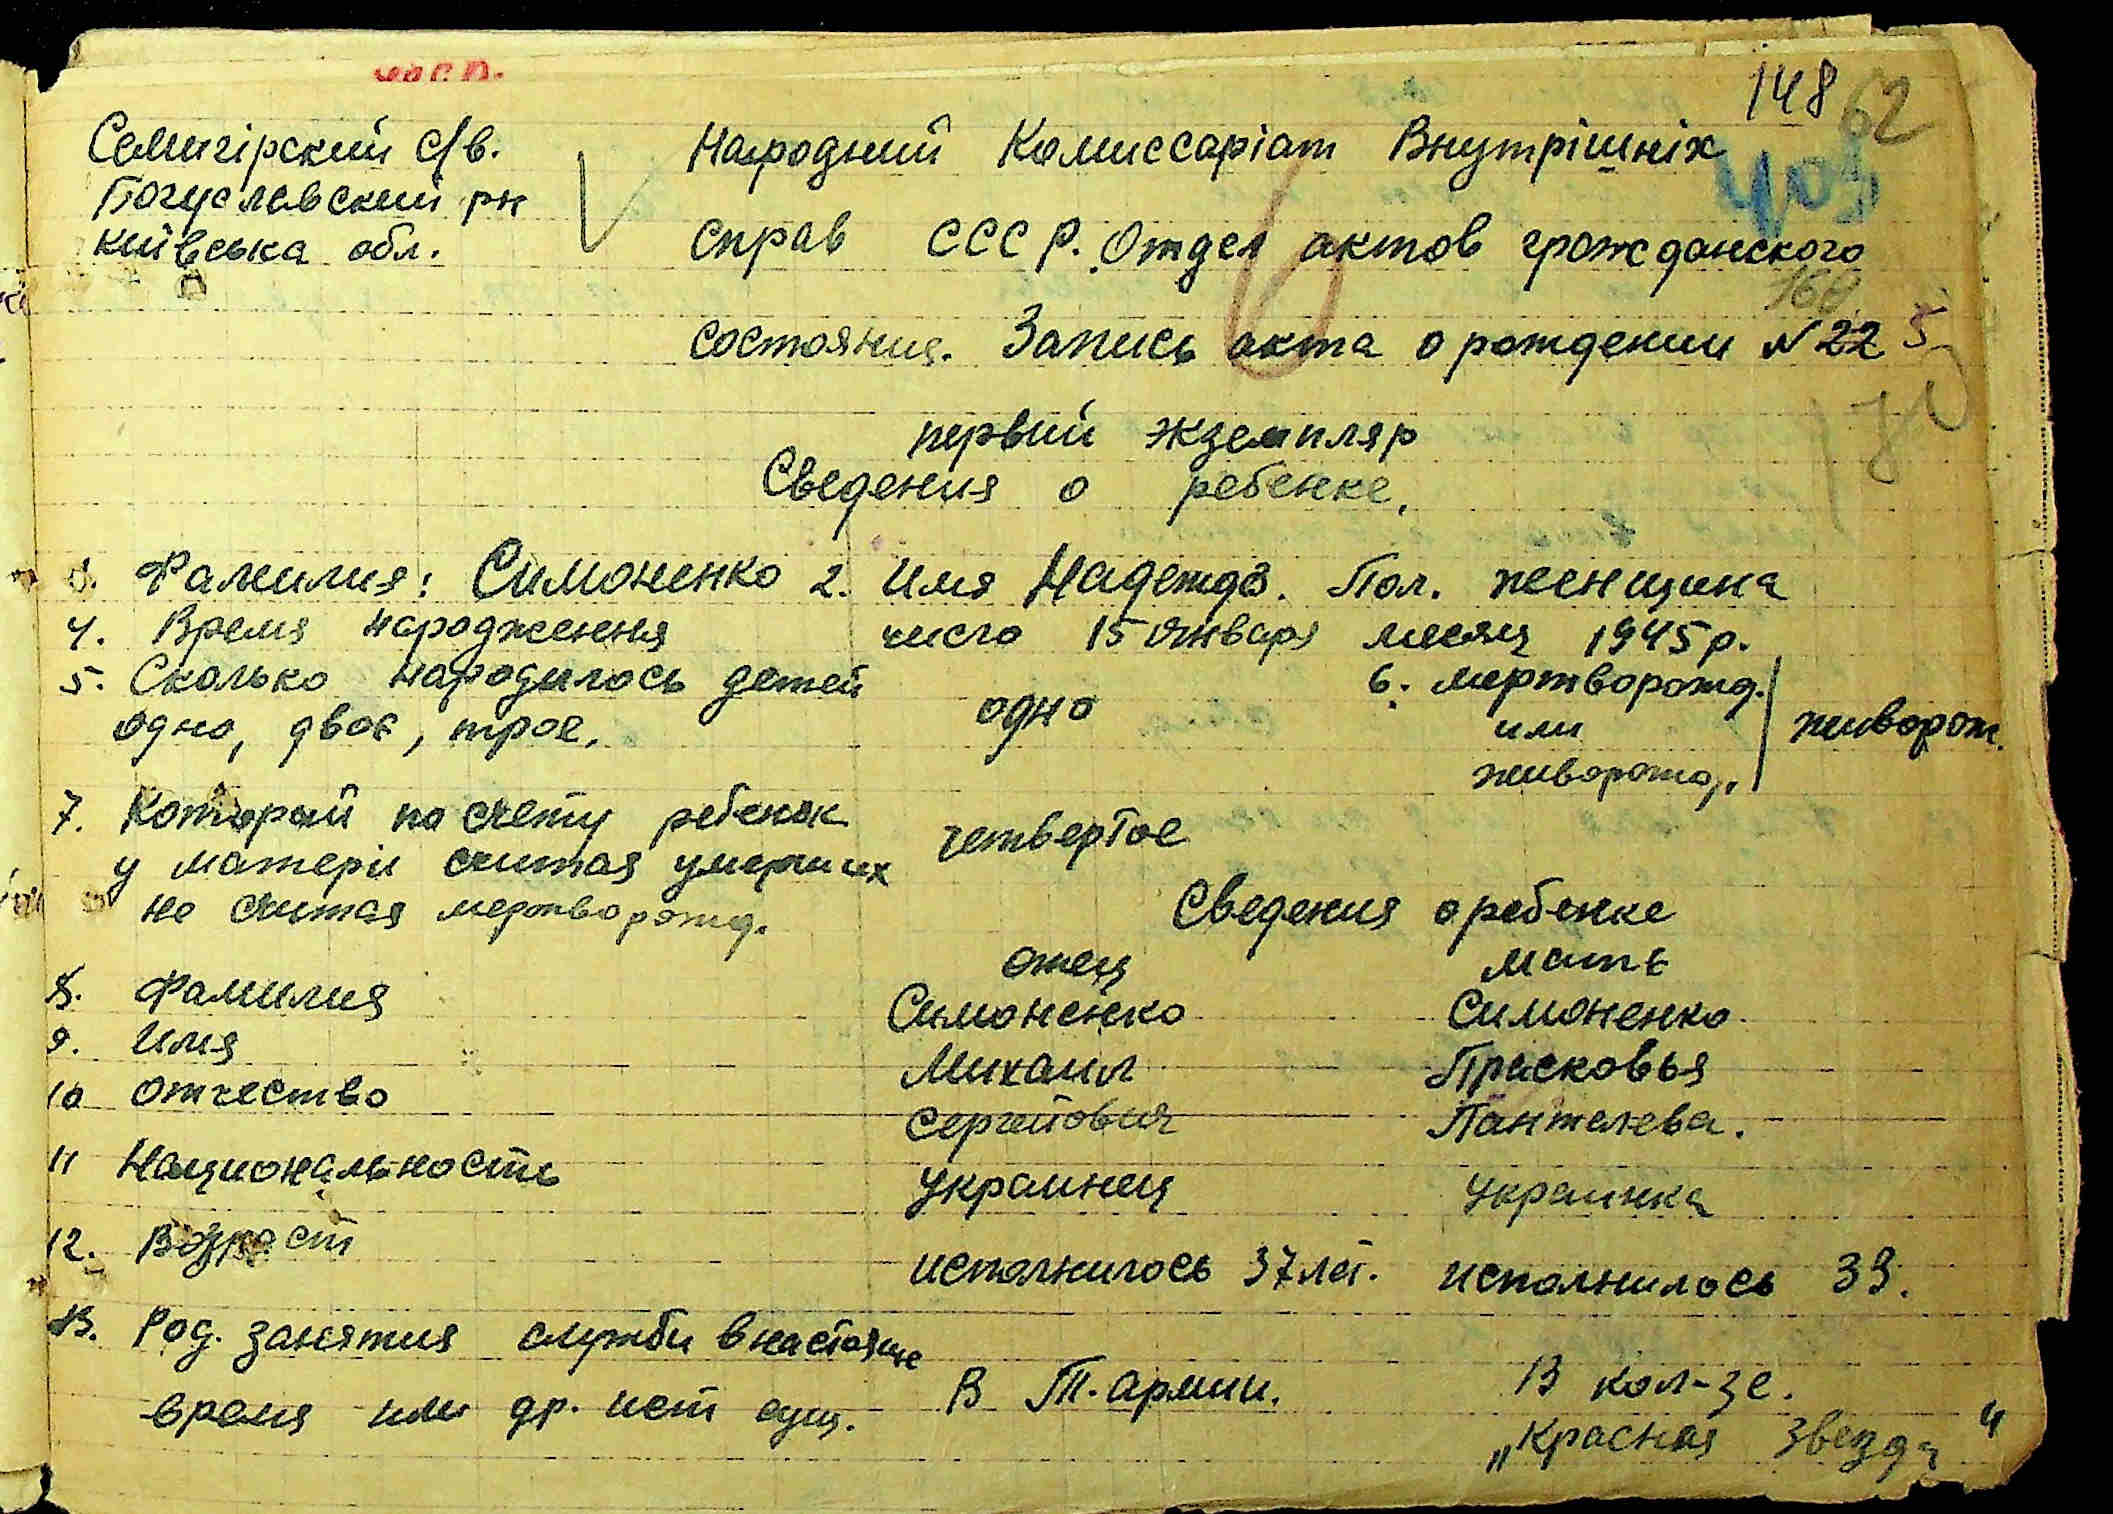 148 62
Семигірский с/в. Народний Комиссаріат Внутрішніх
Богуславский рн
Київська обл. справ СССР. Отдел актов грожданского
160
состояния. Запись акта о рождении N 22 5
первий экземпляр
Сведения о ребенке,
1. Фамилия: Симоненко 2. Имя Надежда. Пол. женщина
4. Время народження число 15 Января месяц 1945 р.
5. Сколько народилось детей одно 6. мертворожд.
одно, двоє, трое, или живорож.
живорожд,.
7. Которай по счету ребенок четвертое
у матери считая умерших
не считая мертворожд. Сведения о ребенке
отец мать
8. Фамилия Симоненко Симоненко
9. Имя Михаил Прасковья
10 Отчество Сергейович Пантелева.
11 Национальность Украинец Украинка
12. Возраст исполнилось 37 лет. исполнилось 33.
13. Род. занятия служби в настояще В Т. армии. В кол-зе.
время или др. ист сущ. „Красная Звезда"